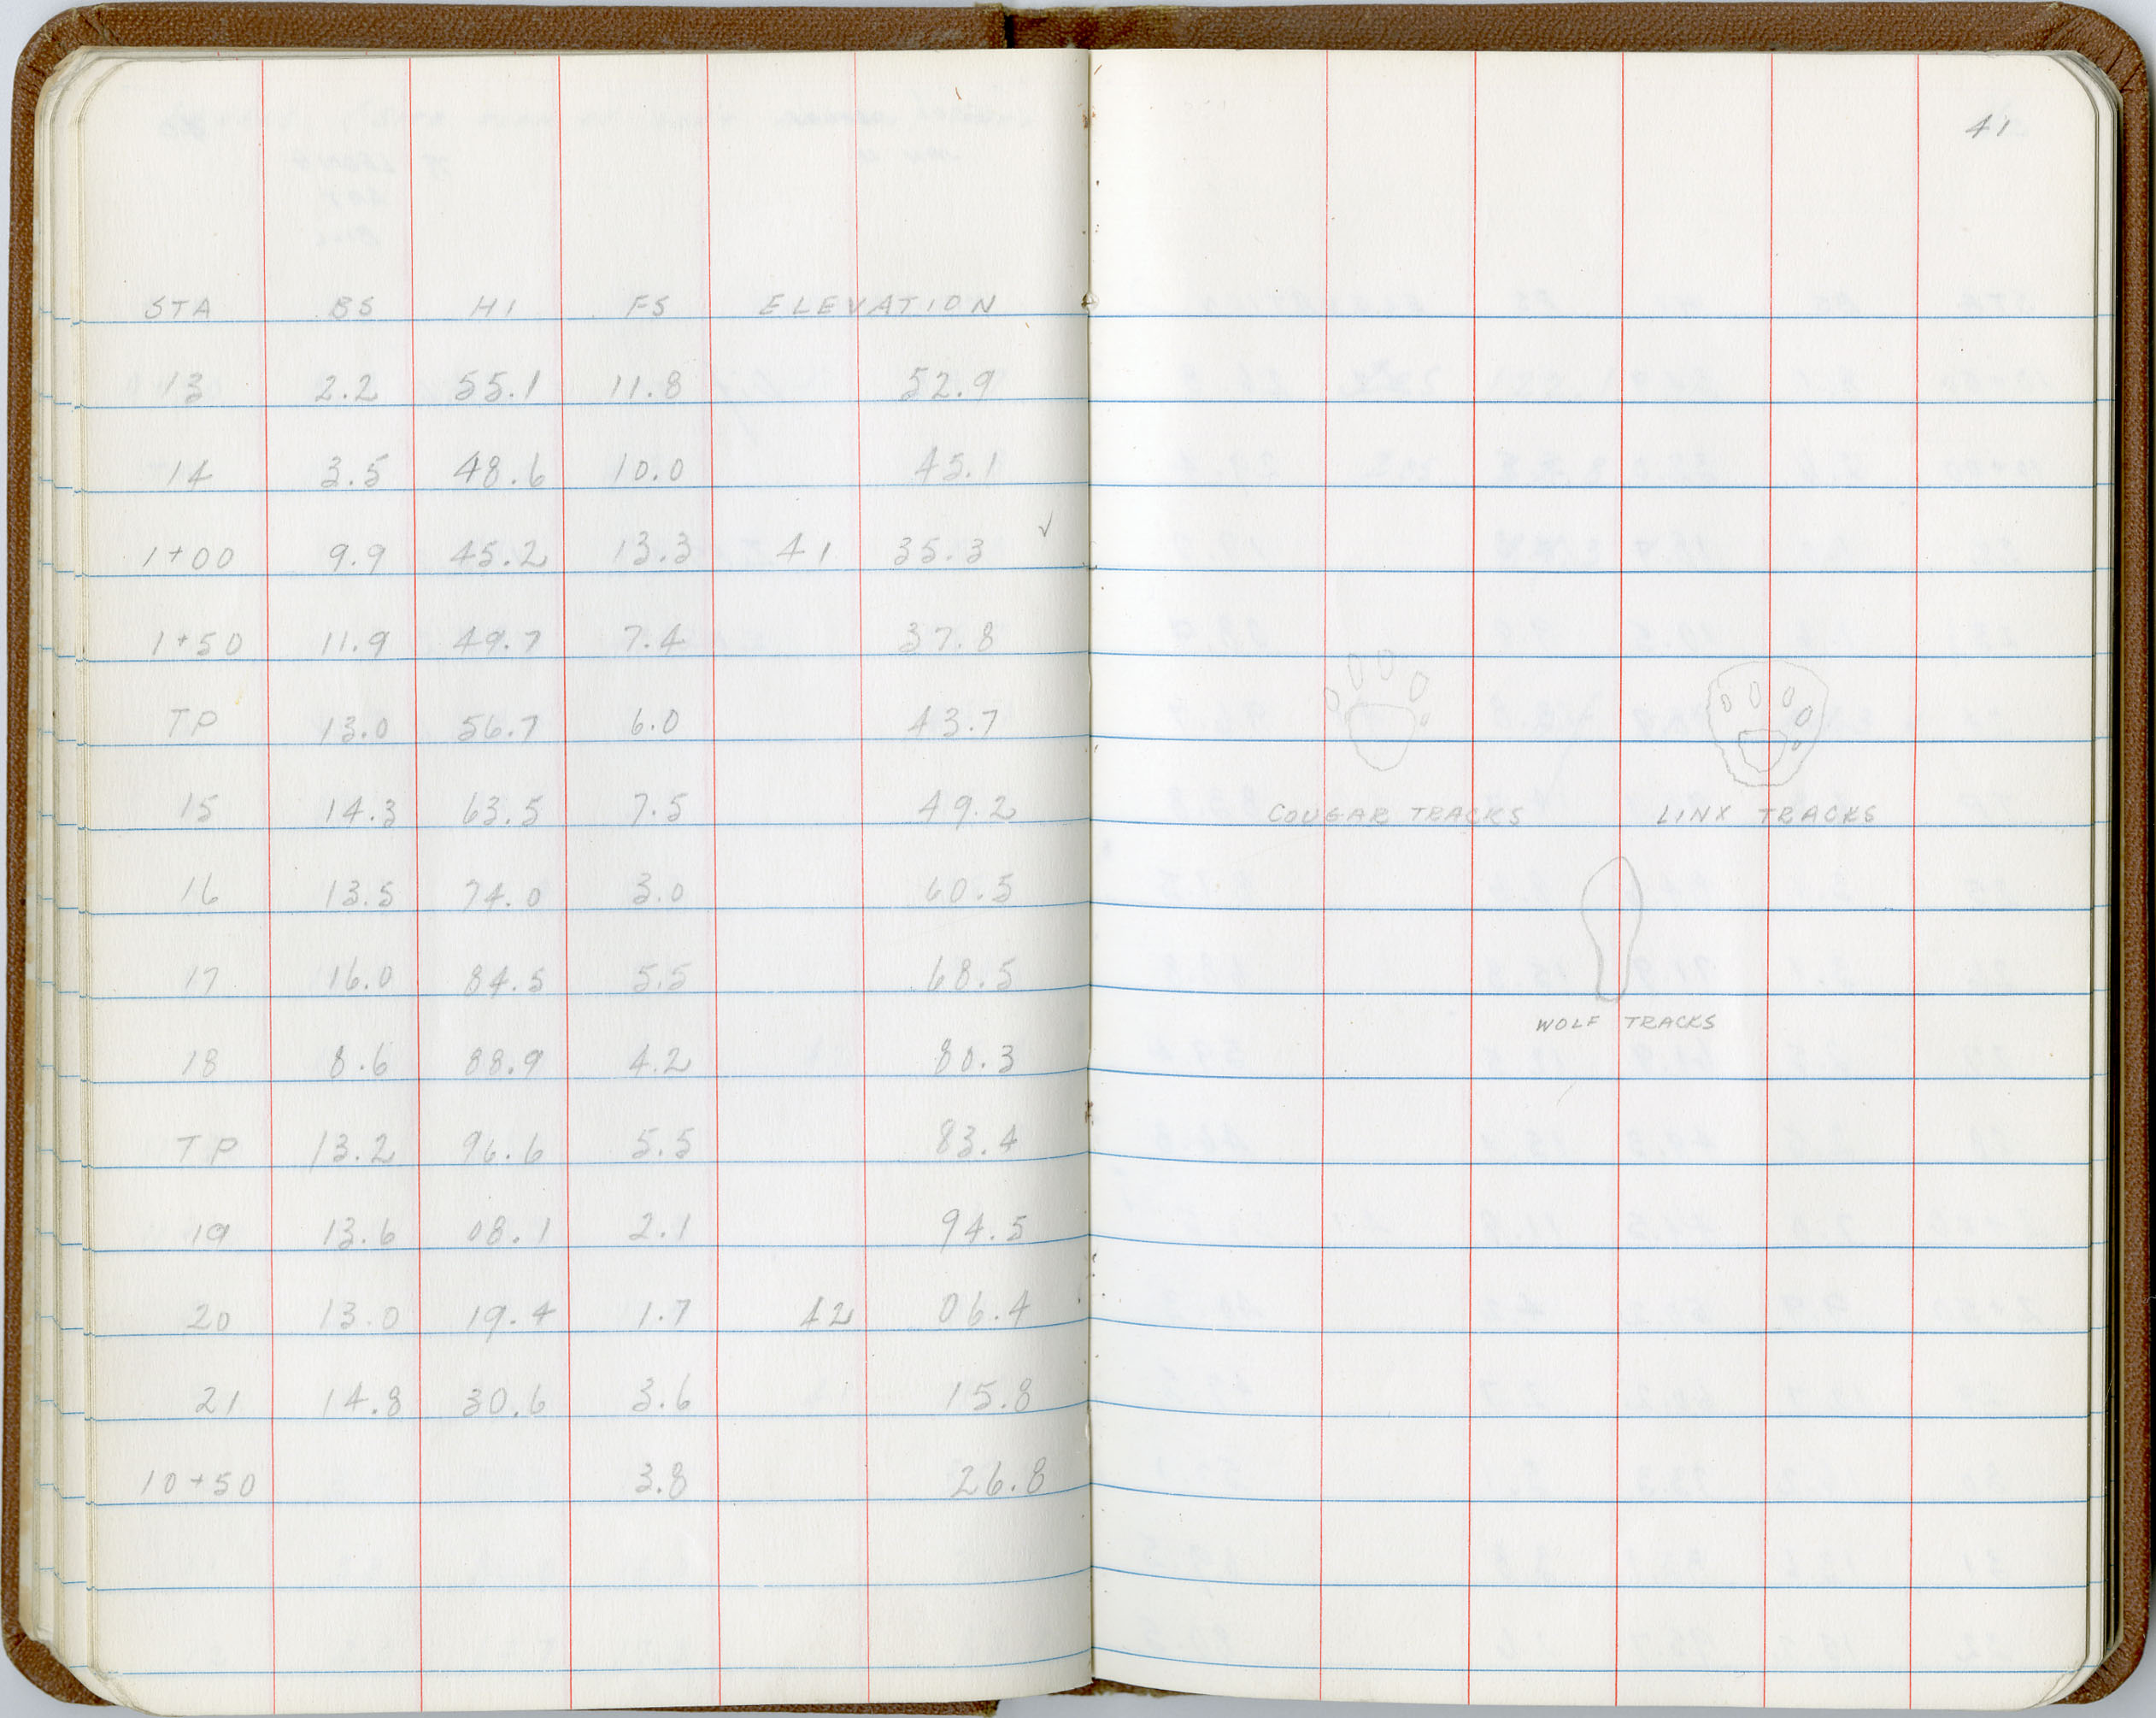 STA BS HI FS ELEVATION
13 2.2 55.1 11.8 52.9
14 3.5 48.6 10.0 45.1
1+00 9.9 45.2 13.3 41 35.3 ✓
1+50 11.9 49.7 7.4 37.8
TP 13.0 56.7 6.0 43.7
15 14.3 63.5 7.5 49.2
16 13.5 74.0 3.0 60.5
17 16.0 84.5 5.5 68.5
18 8.6 88.9 4.2 80.3
TP 13.2 96.6 5.5 83.4
19 13.6 08.1 2.1 94.5
20 13.0 19.4 1.7 42 06.4
21 14.8 30.6 3.6 15.8
10+50 3.8 26.8
41
COUGAR TRACKS LINX TRACKS
WOLF TRACKS